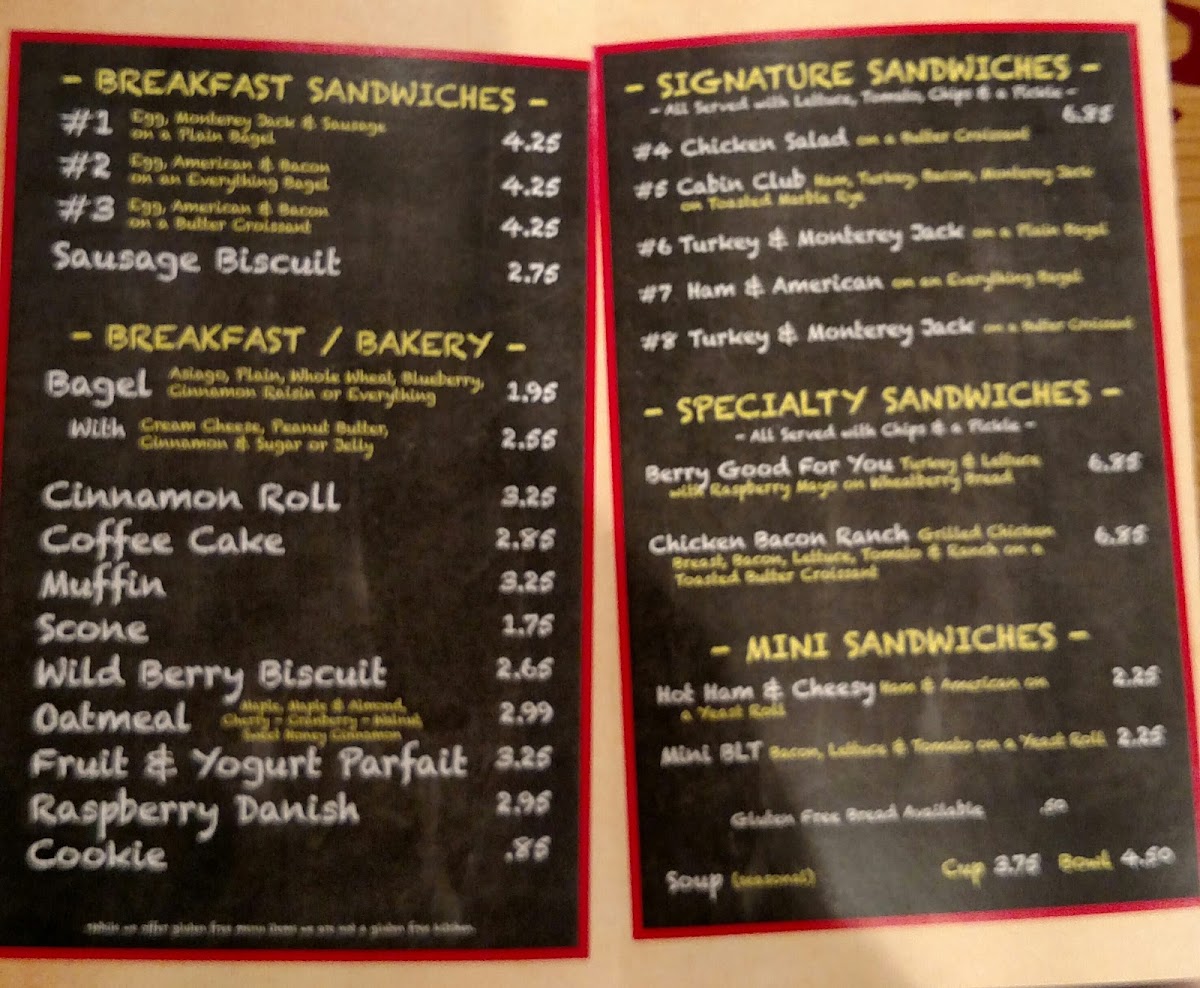 - BREAKFAST SANDWICHES -
#1 Egg, Monterey Jack & Sausage
on a Plain Bagel 4.25
#2 Egg, American & Bacon
on an Everything Bagel 4.25
#3 Egg, American & Bacon
on a Butter Croissant 4.25
Sausage Biscuit 2.75
- BREAKFAST / BAKERY -
Bagel Asiago, Plain, Whole Wheat, Blueberry,
Cinnamon Raisin or Everything 1.95
With Cream Cheese, Peanut Butter,
Cinnamon & Sugar or Jelly 2.55
Cinnamon Roll 3.25
Coffee Cake 2.85
Muffin 3.25
Scone 1.75
Wild Berry Biscuit 2.65
Oatmeal Maple, Maple & Almond,
Cherry - Cranberry - Walnut
Sweet Honey Cinnamon 2.99
Fruit & Yogurt Parfait 3.25
Raspberry Danish 2.95
Cookie .85
*While we offer gluten free menu items we are not a gluten free kitchen.
- SIGNATURE SANDWICHES -
- All Served with Lettuce, Tomato, Chips & a Pickle -
6.85
#4 Chicken Salad on a Butter Croissant
#5 Cabin Club Ham, Turkey, Bacon, Monterey Jack
on Toasted Marble Rye
#6 Turkey & Monterey Jack on a Plain Bagel
#7 Ham & American on an Everything Bagel
#8 Turkey & Monterey Jack on a Butter Croissant
- SPECIALTY SANDWICHES -
- All Served with Chips & a Pickle -
Berry Good For You Turkey & Lettuce 6.85
with Raspberry Mayo on Wheatberry Bread
Chicken Bacon Ranch Grilled Chicken 6.85
Breast, Bacon, Lettuce, Tomato & Ranch on a
Toasted Butter Croissant
- MINI SANDWICHES -
Hot Ham & Cheesy Ham & American on 2.25
a Yeast Roll
Mini BLT Bacon, Lettuce & Tomato on a Yeast Roll 2.25
Gluten Free Bread Available .50
Soup (seasonal) Cup 3.75 Bowl 4.50